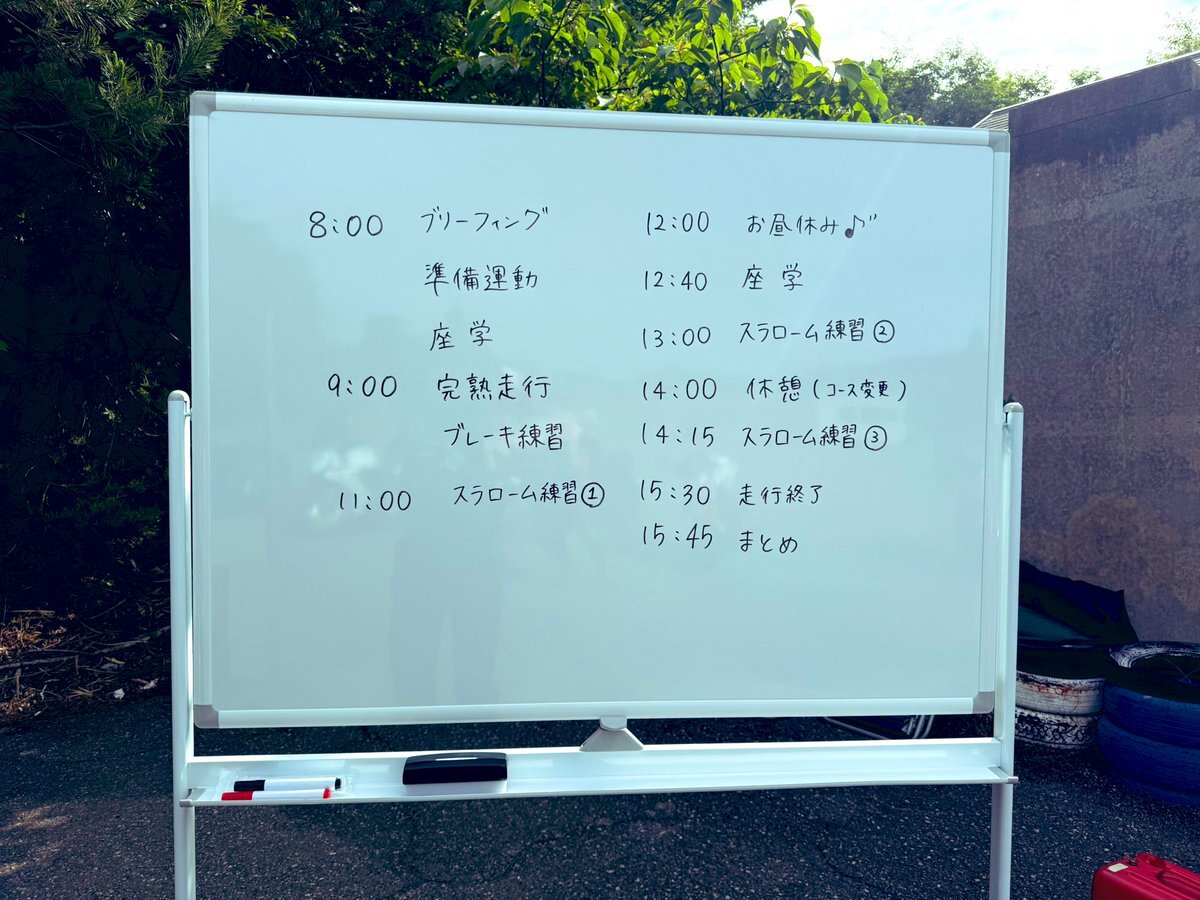 8:00 ブリーフィング
準備運動
座学
9:00 完熟走行
ブレーキ練習
11:00 スラローム練習①
12:00 お昼休み♪
12:40 座学
13:00 スラローム練習②
14:00 休憩(コース変更)
14:15 スラローム練習③
15:30 走行終了
15:45 まとめ